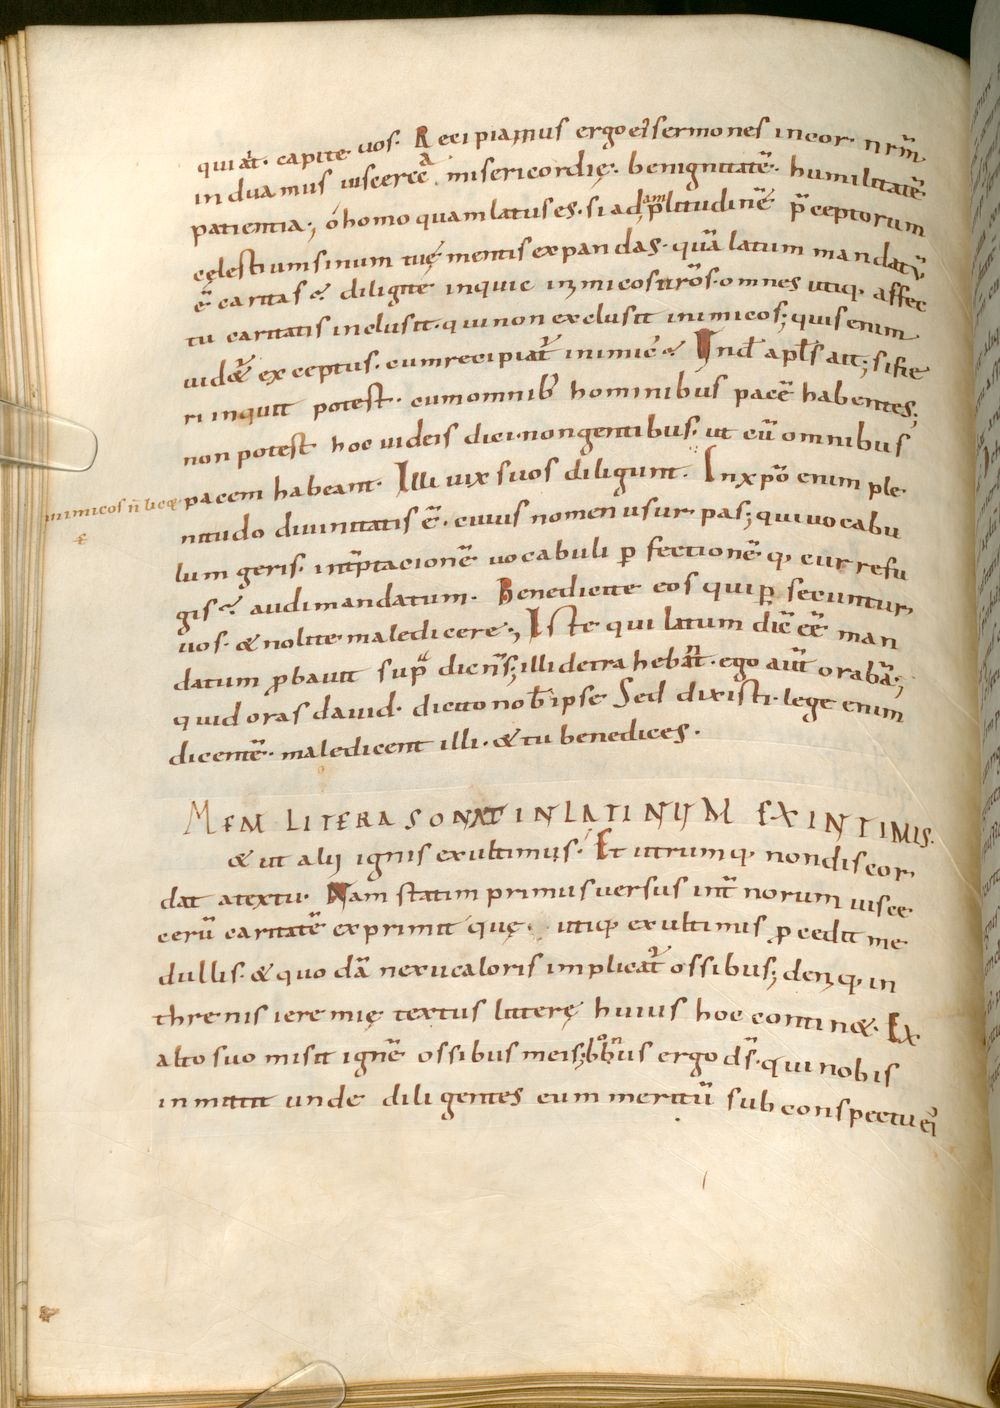 qui ait. capite uos. Recipiamus ergo ei᷒ sermones in cor. nr̄m.
induamus uisceræǣ misericordię. benignitatē. humilitatē
patientia; ó homo quam latus es. si ad āplitudinē p̄ceptorum
cęlestium sinum tuę mentis expandas. quā latum mandatū
ē caritas? diligite inquic inimicos ur̄os. omnes utiq. affec
tu caritatis inclusit. qui non exclusit inimicos; quis enim
uid& exceptus. cum recipiat̄ inimic᷒? Und̄ apl̄s ait; si fie
ri inquit potest. cum omnib; hominibus pacē habentes;
non potest hoc uideis dici. non gentibus. ut cū omnibus
pacem habeant. Illi uix suos diligunt. In xp̄o enim ple
inimicos n̄ licet
nitudo diuinitatis ē. cuius nomen usurpas; qui uocabu
lum geris. int̄p̄tacionē uocabuli ꝑfectionē q. cur refu
gis? audi mandatum. Benedicite eos qui ꝑsecuntur
uos. & nolite maledicere; Iste qui latum dic̄ eē man
datum ꝓbauit sup̄ dicens; illi detrahebant. ego aut̄ orabā;
quid oras dauid. dicito nob̄ ipse Sed dixisti. lege enim
dicentē. maledicent illi. & tu benedices.
MEM LITERA SONAT IN LATINUM EXINTIMIS.
& ut alij ignis ex ultimis. Et utrumq. non discor
dat a textu. Nam statim primus uersus int̄norum uisce
cerū caritatē exprimit quę utiq. ex ultimis ꝓcedit me
dullis. & quodā nexu caloris implicat̄ ossibus; deniq. in
threnis ieremię textus litterę huius hoc contin&. Ex
alto suo misit ignē ossibus meis; bonus ergo dś. qui nobis
inmittit unde diligentes eum meritū sub conspectu ei᷒